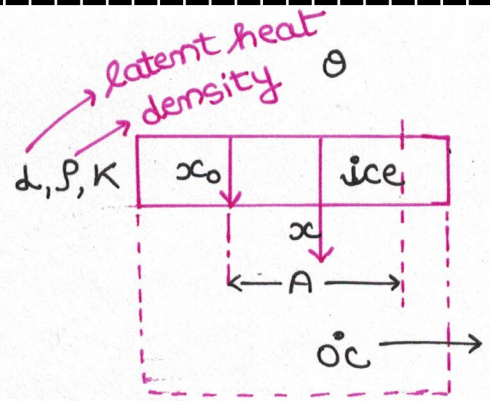 latent heat
θ
density
L, ρ, K
x₀
ice
x
A
0°C